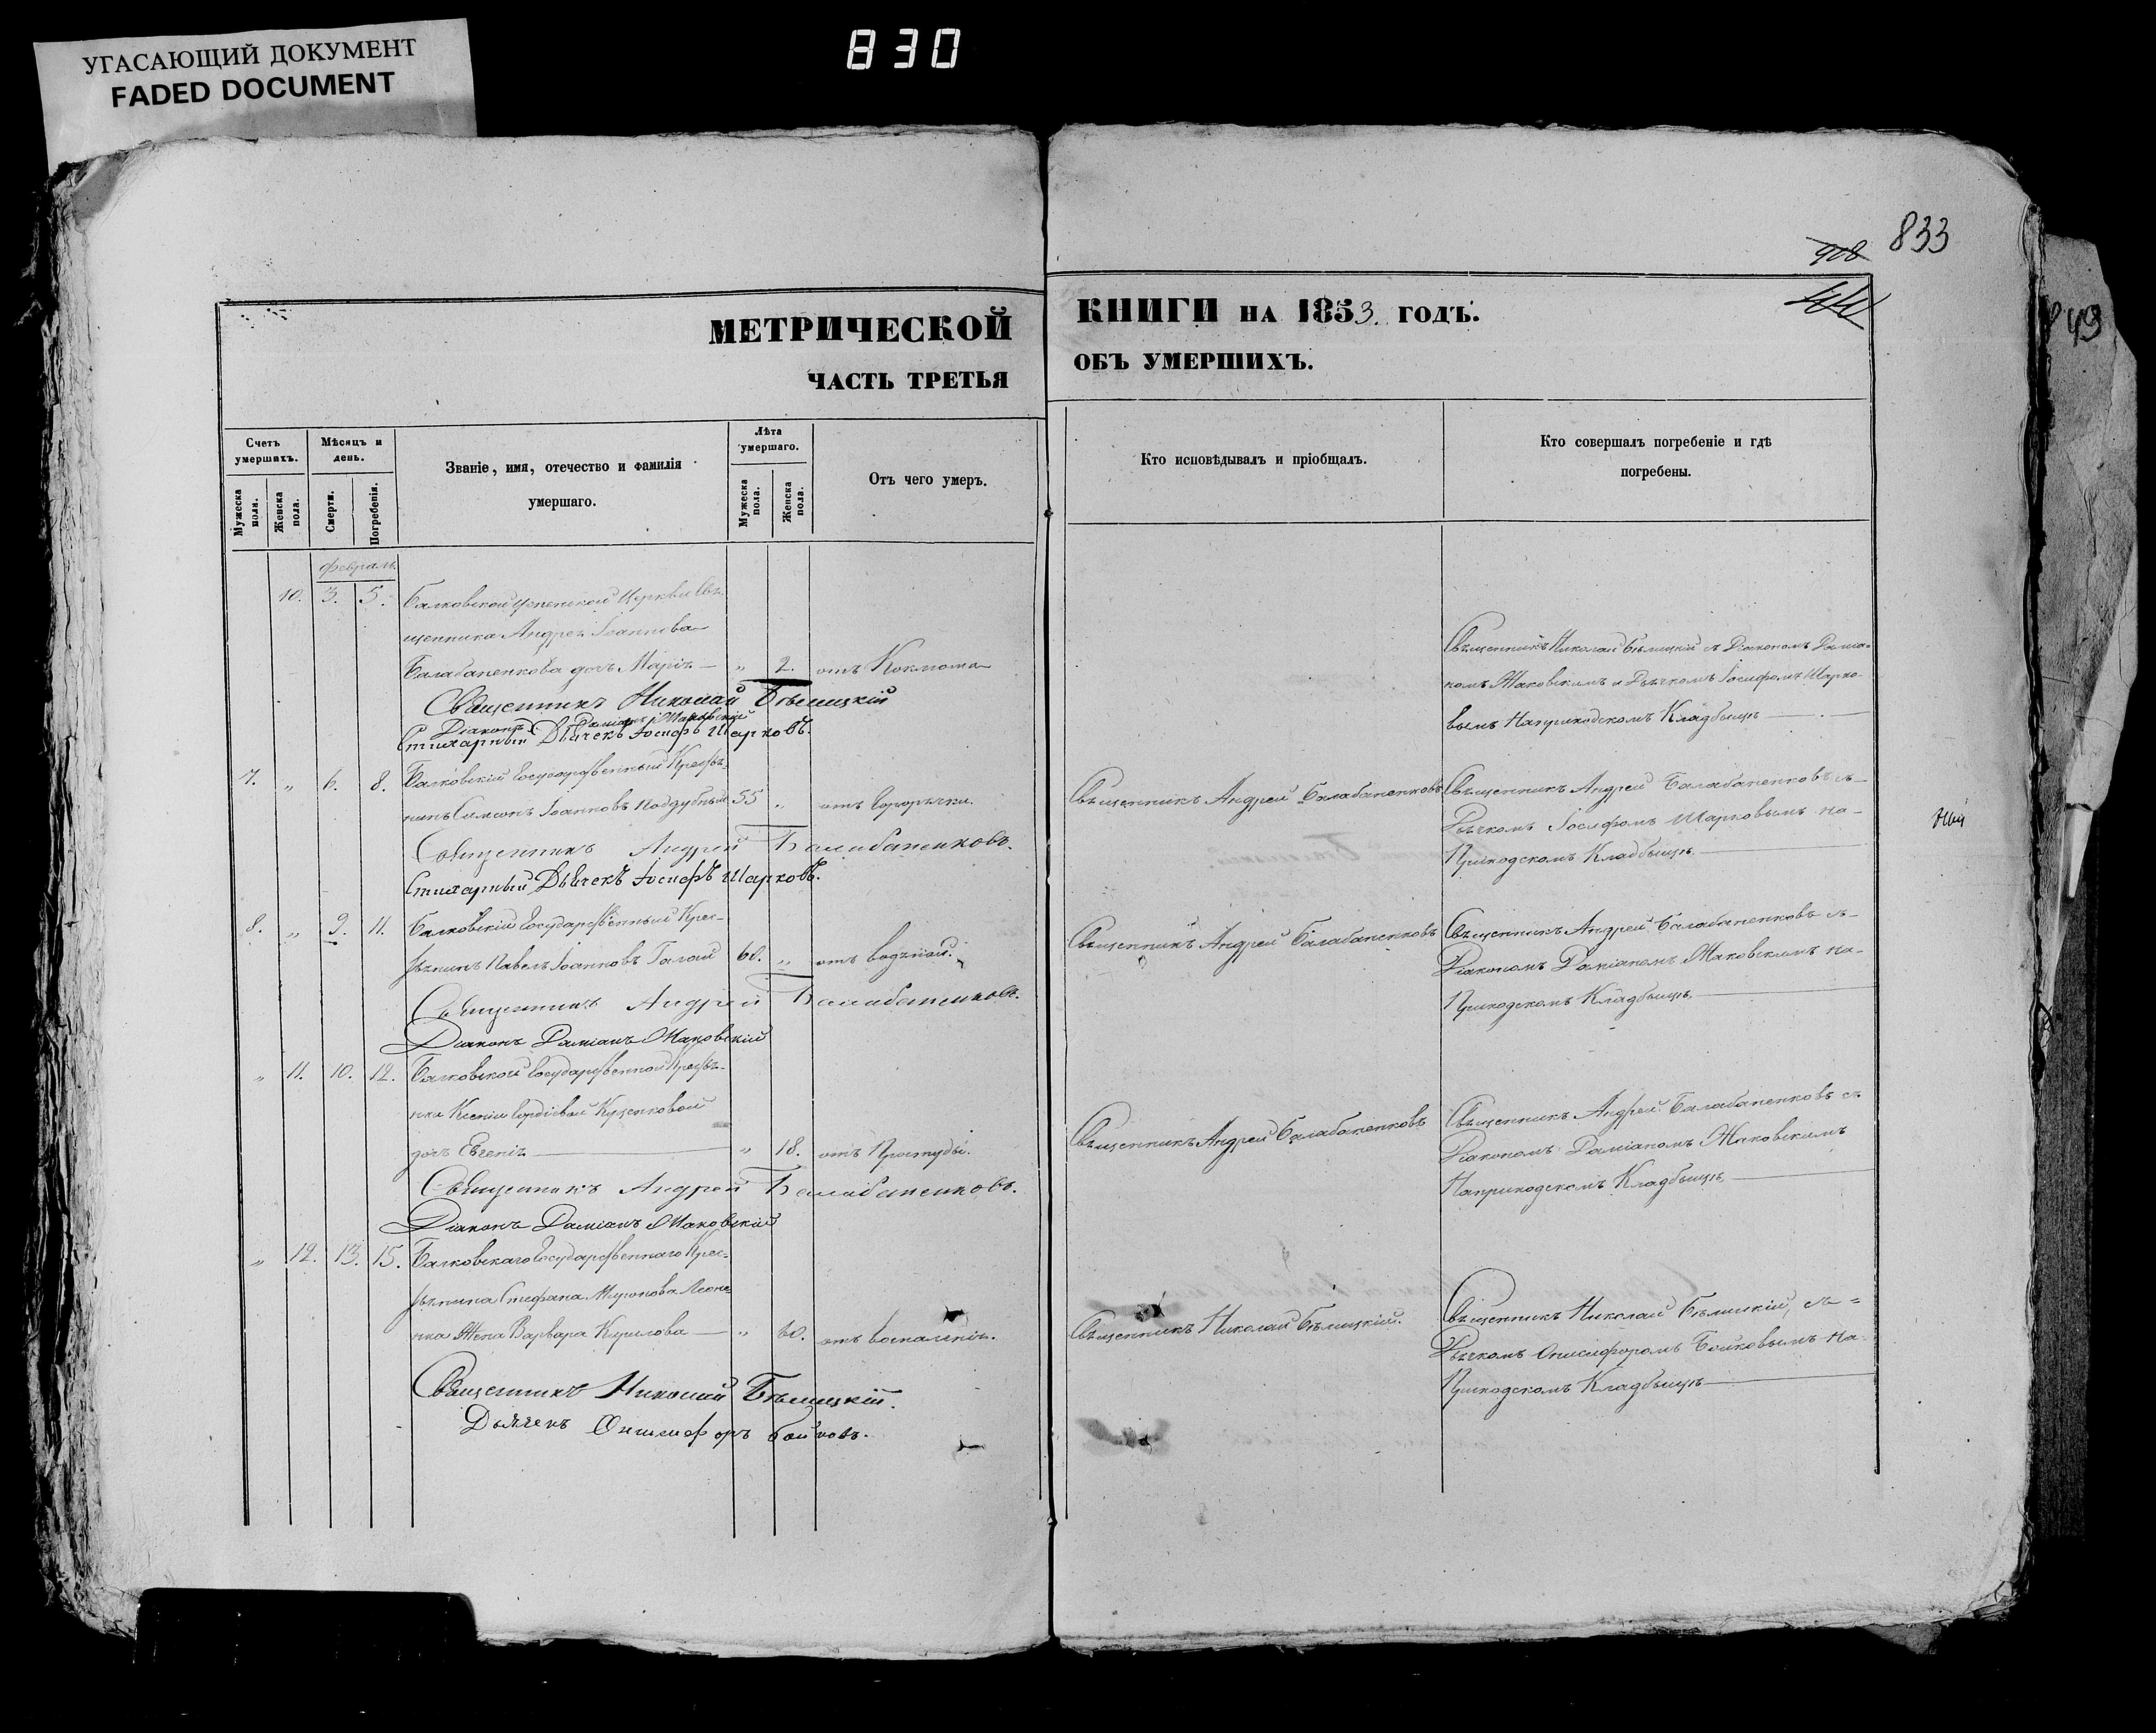 УГАСАЮЩИЙ ДОКУМЕНТ
FADED DOCUMENT
830
833
908
849
МЕТРИЧЕСКОЙ
ЧАСТЬ ТРЕТЬЯ
КНИГИ НА 1853. ГОДЪ.
ОБЪ УМЕРШИХЪ.
Счетъ умершихъ.
Мужеска пола.
Женска пола.
Мѣсяцъ и день.
Смерти.
Погребенія.
Званіе, имя, отечество и фамилія
умершаго.
Лѣта умершаго.
Мужеска пола.
Женска пола.
Отъ чего умеръ.
Кто исповѣдывалъ и пріобщалъ.
Кто совершалъ погребеніе и гдѣ
погребены.
Февраль
10. 3. 5. Балковской Успенской Церкви Свя-
щенника Андрея Іоаннова
Балабаненкова дочь Марія — „ 2. отъ Коклюша
Священникъ Николай Бѣлицкій съ Діакономъ Даміа-
номъ Маковскимъ и Дьячкомъ Іосифомъ Шарко-
вымъ На приходскомъ Кладбищѣ
Священникъ Николай Бѣлицкій
Діаконъ Даміанъ Маковскій
Стихарный Дьячекъ Іосифъ Шарковъ.
7. „ 6. 8. Балковскій Государственный Крестья-
нинъ Симеонъ Іоанновъ Поддубный 55 „ отъ Горячки.
Священникъ Андрей Балабаненковъ
Священникъ Андрей Балабаненковъ съ
Дьячкомъ Іосифомъ Шарковымъ на
Приходскомъ Кладбищѣ
Священникъ Андрей Балабаненковъ.
Стихарный Дьячекъ Іосифъ Шарковъ.
8. „ 9. 11. Балковскій Государственный Крес-
тьянинъ Павелъ Іоанновъ Галай 60. „ отъ водяной.
Священникъ Андрей Балабаненковъ
Священникъ Андрей Балабаненковъ съ
Діакономъ Даміаномъ Маковскимъ на
Приходскомъ Кладбищѣ
Священникъ Андрей Балабаненковъ.
Діаконъ Даміанъ Маковскій
„ 11. 10. 12. Балковской Государственной Крестья-
нки Ксеніи Гордіевой Куценковой
дочь Евгенія — „ 18. отъ Простуды.
Священникъ Андрей Балабаненковъ
Священникъ Андрей Балабаненковъ съ
Діакономъ Даміаномъ Маковскимъ
На приходскомъ Кладбищѣ
Священникъ Андрей Балабаненковъ.
Діаконъ Даміанъ Маковскій
„ 12. 13. 15. Балковскаго Государственнаго Крес-
тьянина Стефана Жена Варвара Кирилова — „ 60. отъ воспаленія.
Священникъ Николай Бѣлицкій.
Священникъ Николай Бѣлицкій, съ
Дьячкомъ Онисифоромъ Бойковымъ на
Приходскомъ Кладбищѣ
Священникъ Николай Бѣлицкій.
Дьячекъ Онисифоръ Бойковъ.